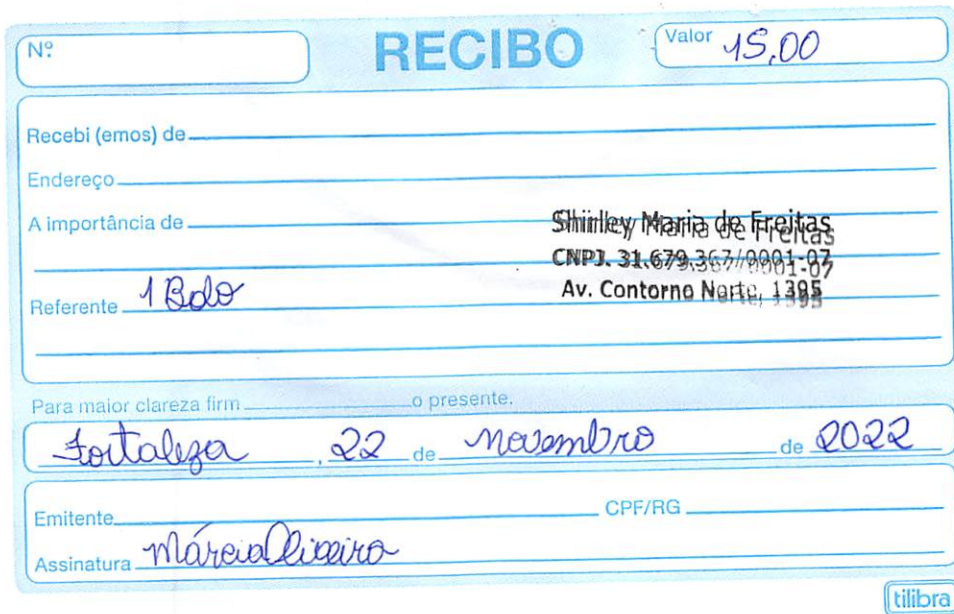 Nº RECIBO Valor 15,00
Recebi (emos) de
Endereço
A importância de
Shirley Maria de Freitas
CNPJ. 31.679.367/0001-07
Av. Contorno Norte, 1395
Referente 1 Bolo
Para maior clareza firm o presente.
Fortaleza, 22 de novembro de 2022
Emitente CPF/RG
Assinatura Márcia Oliveira
tilibra